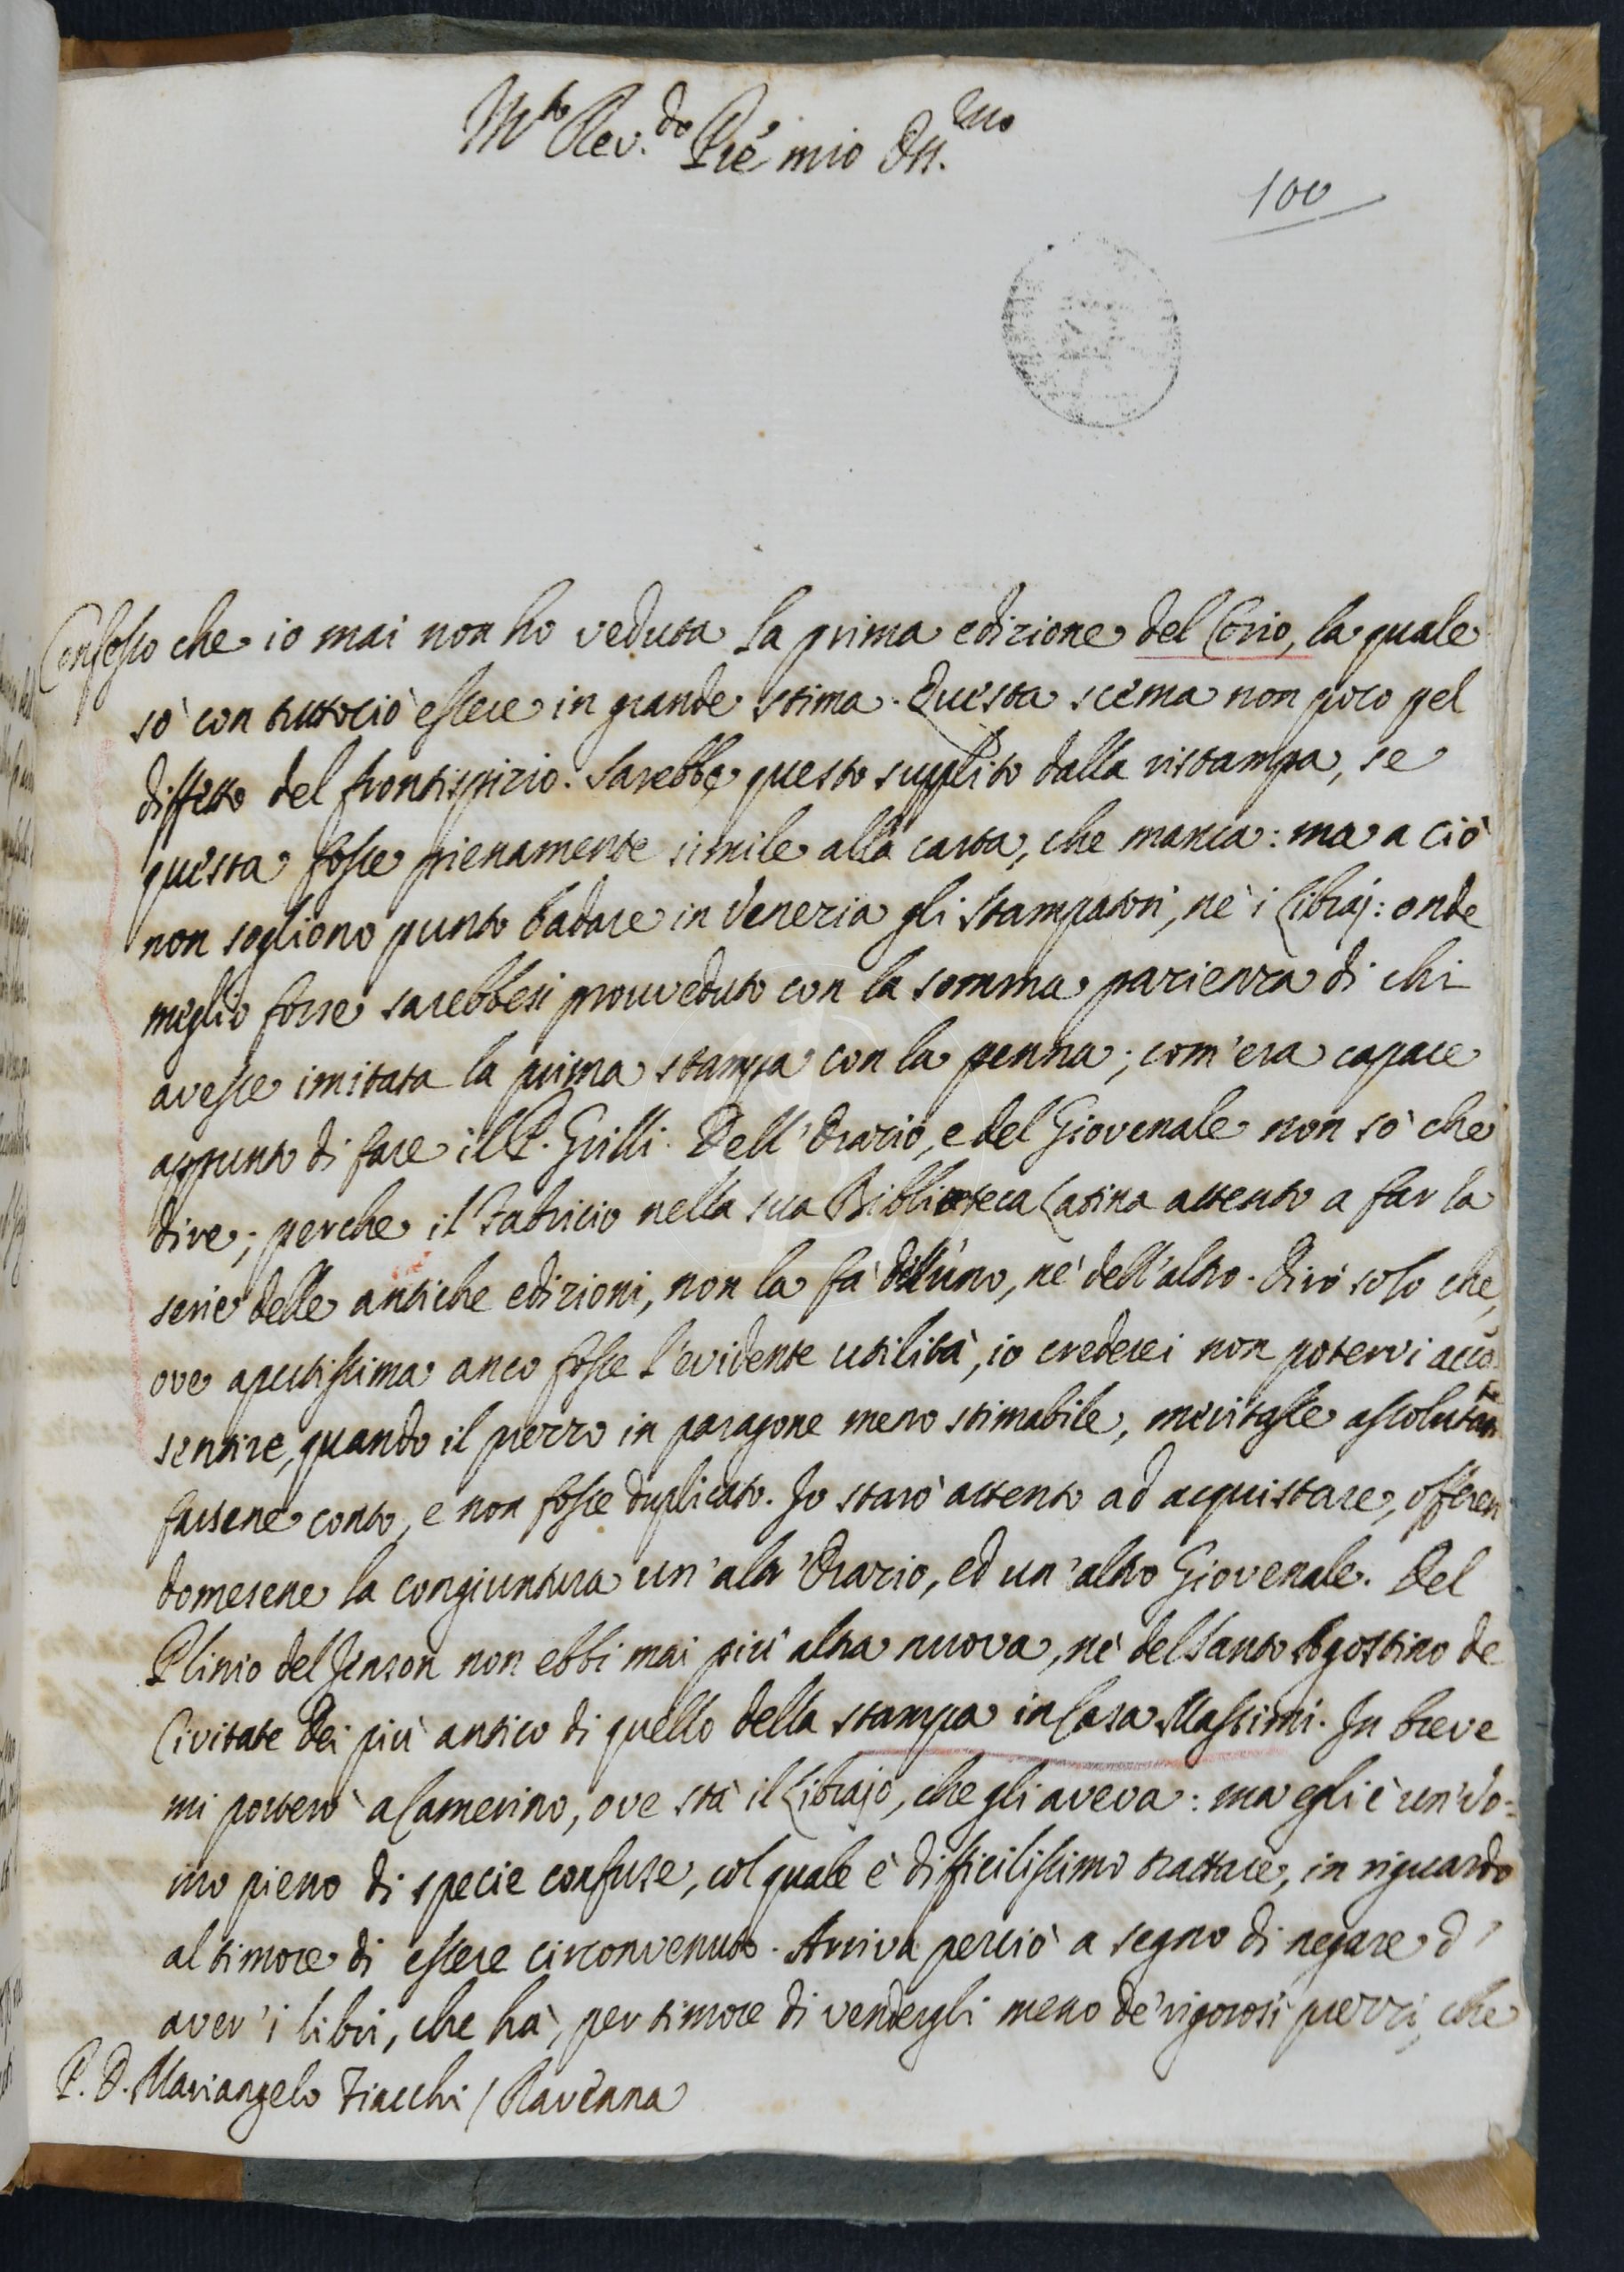 M.to Rev.do Prê mio Oss.mo
100
Confesso che io mai non ho veduta la prima edizione del Corio, la quale
sò con tuttociò essere in grande stima. Questa scema non poco pel
diffetto del frontispizio. Sarebbe questo supplito dalla ristampa, se
questa fosse pienamente simile alla carta, che manca: ma a ciò
non sogliono punto badare in Venezia gli stampatori, nè i Libraj: onde
meglio forse sarebbesi provveduto con la somma pazienza di chi
avesse imitata la prima stampa con la penna; com'era capace
appunto di fare il P. Grilli. Dell'Orazio, e del Giovenale non sò che
dire; perche il Fabricio nella sua Biblioteca Latina attento a far la
serie delle antiche edizioni, non la fà dell'uno, nè dell'altro. Dirò solo che,
ove apertissima anco fosse l'evidente utilità, io crederei non potervi acco-
sentire, quando il pezzo in paragone meno stimabile, meritasse assolutam.te
farsene conto, e non fosse duplicato. Io starò attento ad acquistare, offeren-
domesene la congiuntura un'altr'Orazio, ed un'altro Giovenale. Del
Plinio del Jenson non ebbi mai più altra nuova, nè del Santo Agostino de
Civitate Dei più antico di quello della stampa in Casa Massimi. In breve
mi porterò a Camerino, ove stà il Librajo, che gli aveva: ma egli è un'vo=
mo pieno di specie confuse, col quale è difficilissimo trattare, in riguardo
al timore di essere circonvenuto. Arriva perciò a segno di negare d'
aver'i libri, che hà, per timore di vendergli meno de'rigorosi prezzi, che
P. D. Mariangelo Fiacchi / Ravenna